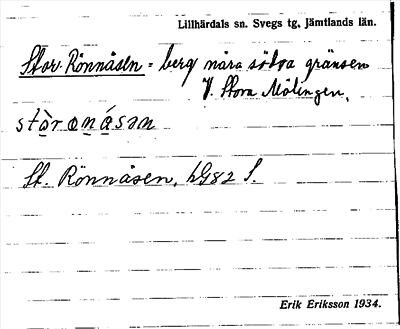 Lillhärdals sn. Svegs tg, Jämtlands län.
Stor-Rönnåsen = berg nära södra gränsen
V. Stora Mälingen.
St. Rönnåsen, hG82 S.
Erik Eriksson 1934.